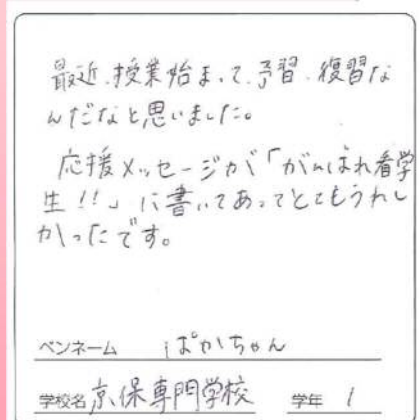 最近、授業始まって、予習、復習な
んだなと思いました。
応援メッセージが「がんばれ看学
生!!」に書いてあってとてもうれし
かったです。
ペンネーム ぽかちゃん
学校名 京保専門学校 学年 1